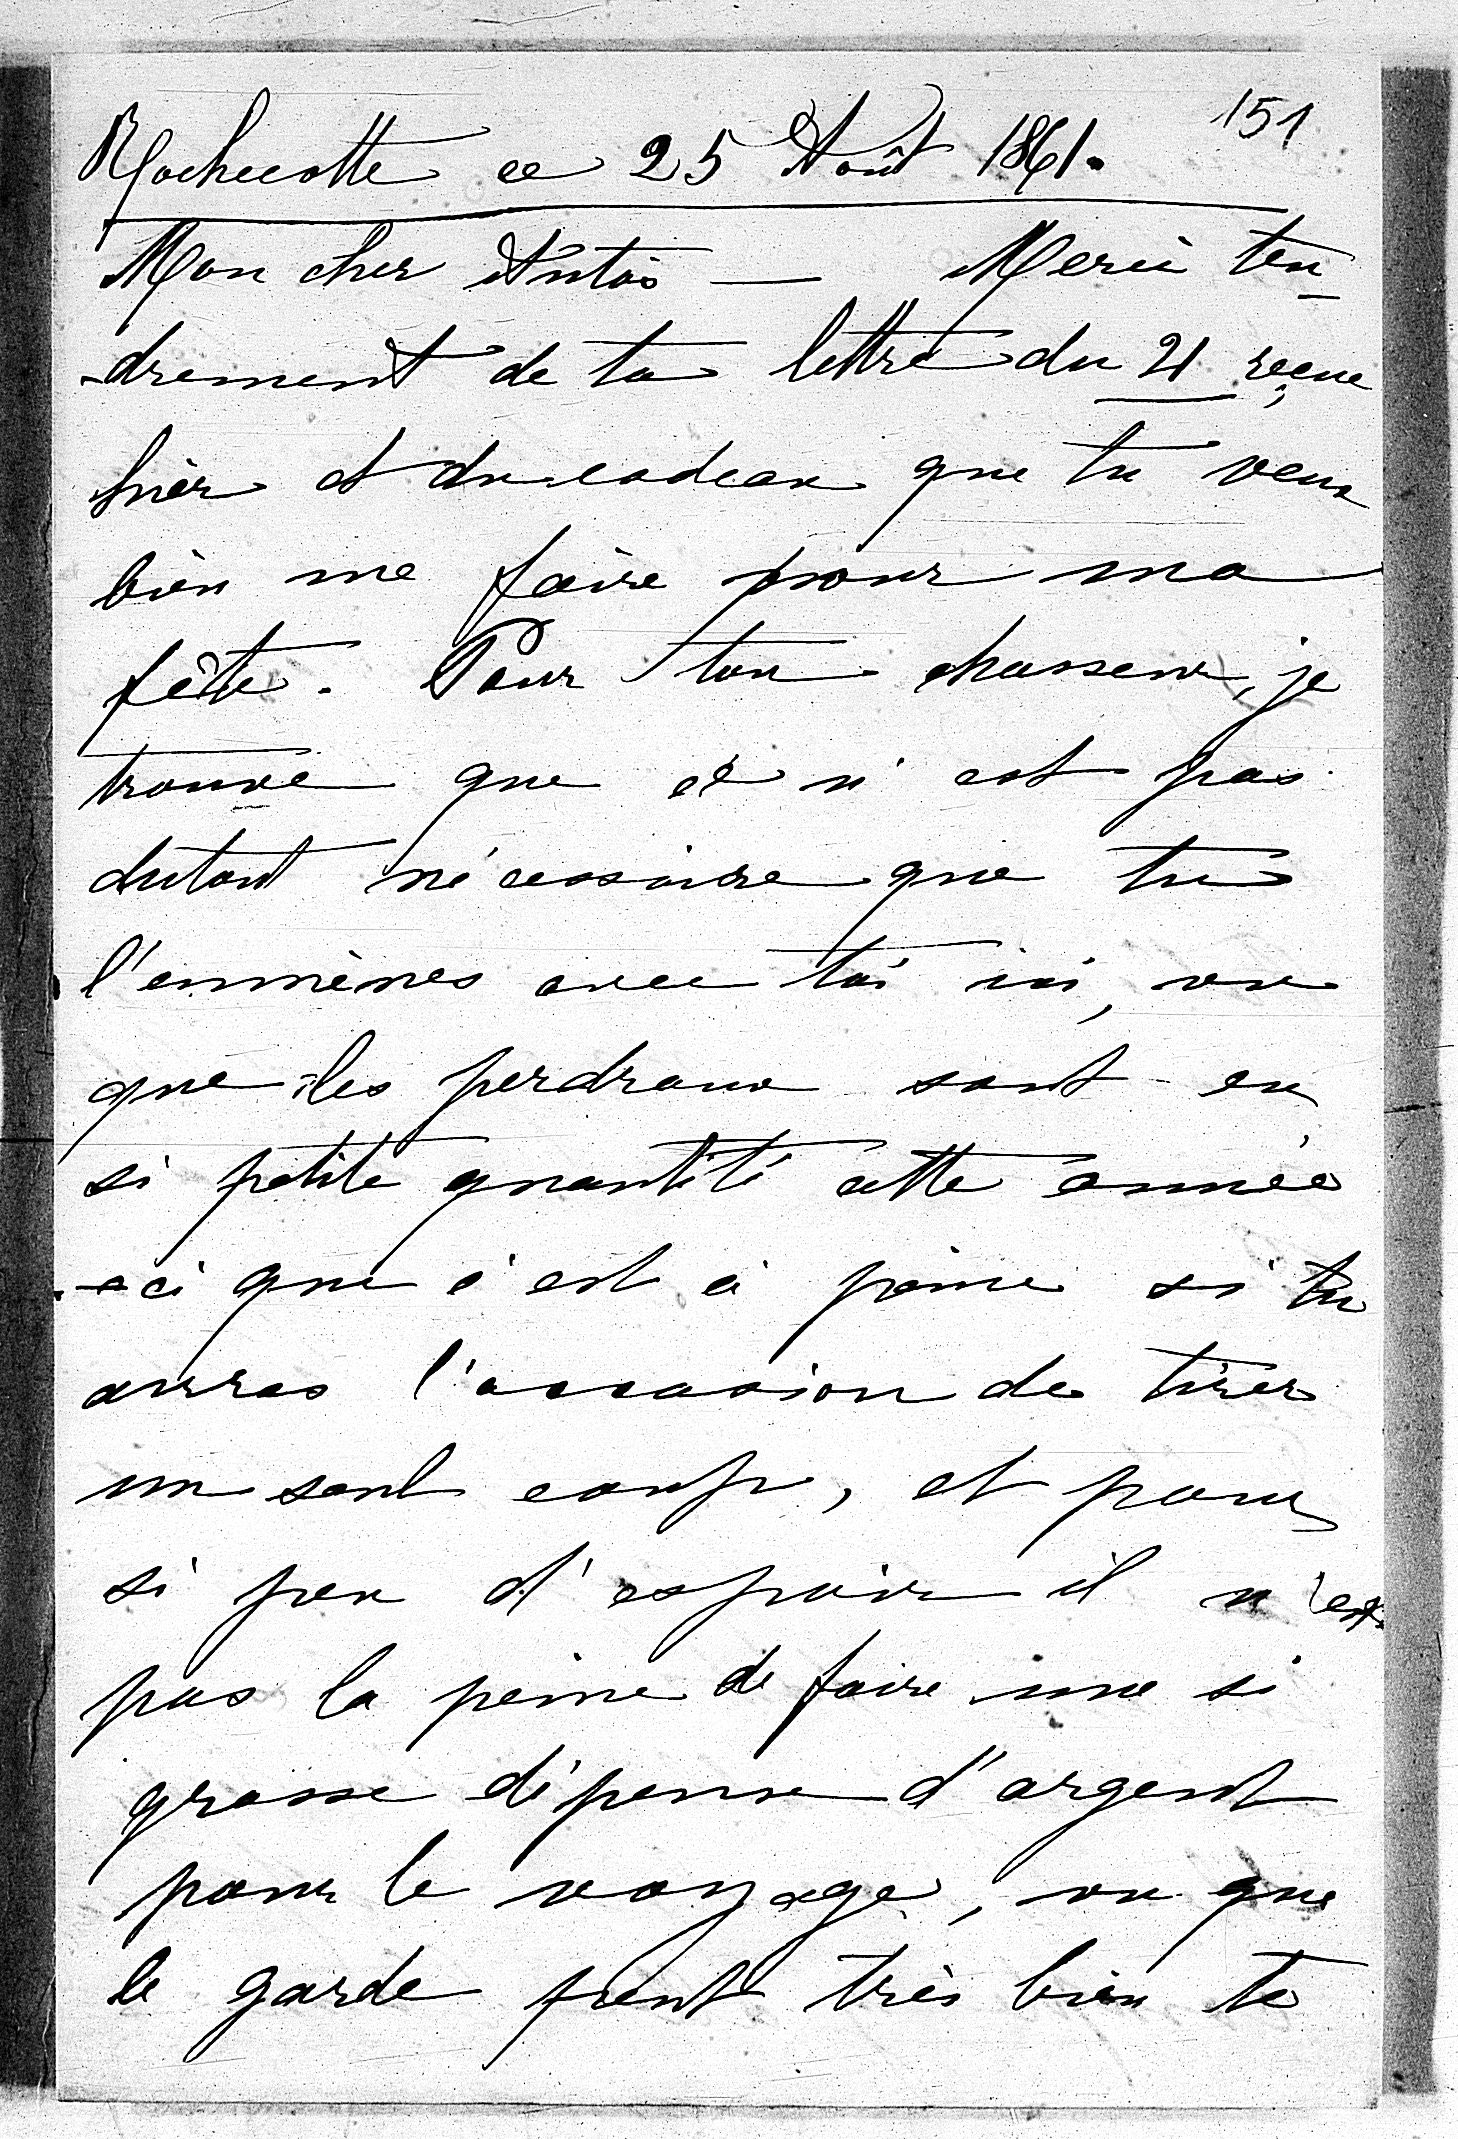 151
Rochecotte ce 25 Août 1861.
Mon cher Antoś — Merci ten-
-drement de ta lettre du 21 reçue
hièr et du cadeau que tu veux
bièn me faire pour ma
fête. Pour ton chasseur, je
trouve que ce n'est pas
dutout nécessaire que tu
l'emmènes avec toi ici, vu
que les perdraux sont en
si petite quantité cette année
-ci que c'est à peine si tu
auras l'occasion de tirer
un seul coup, et pour
si peu d'espoir il n'est
pas la peine de faire une si
grosse dépense d'argent
pour le voyage, vu que
le garde peut très bien te